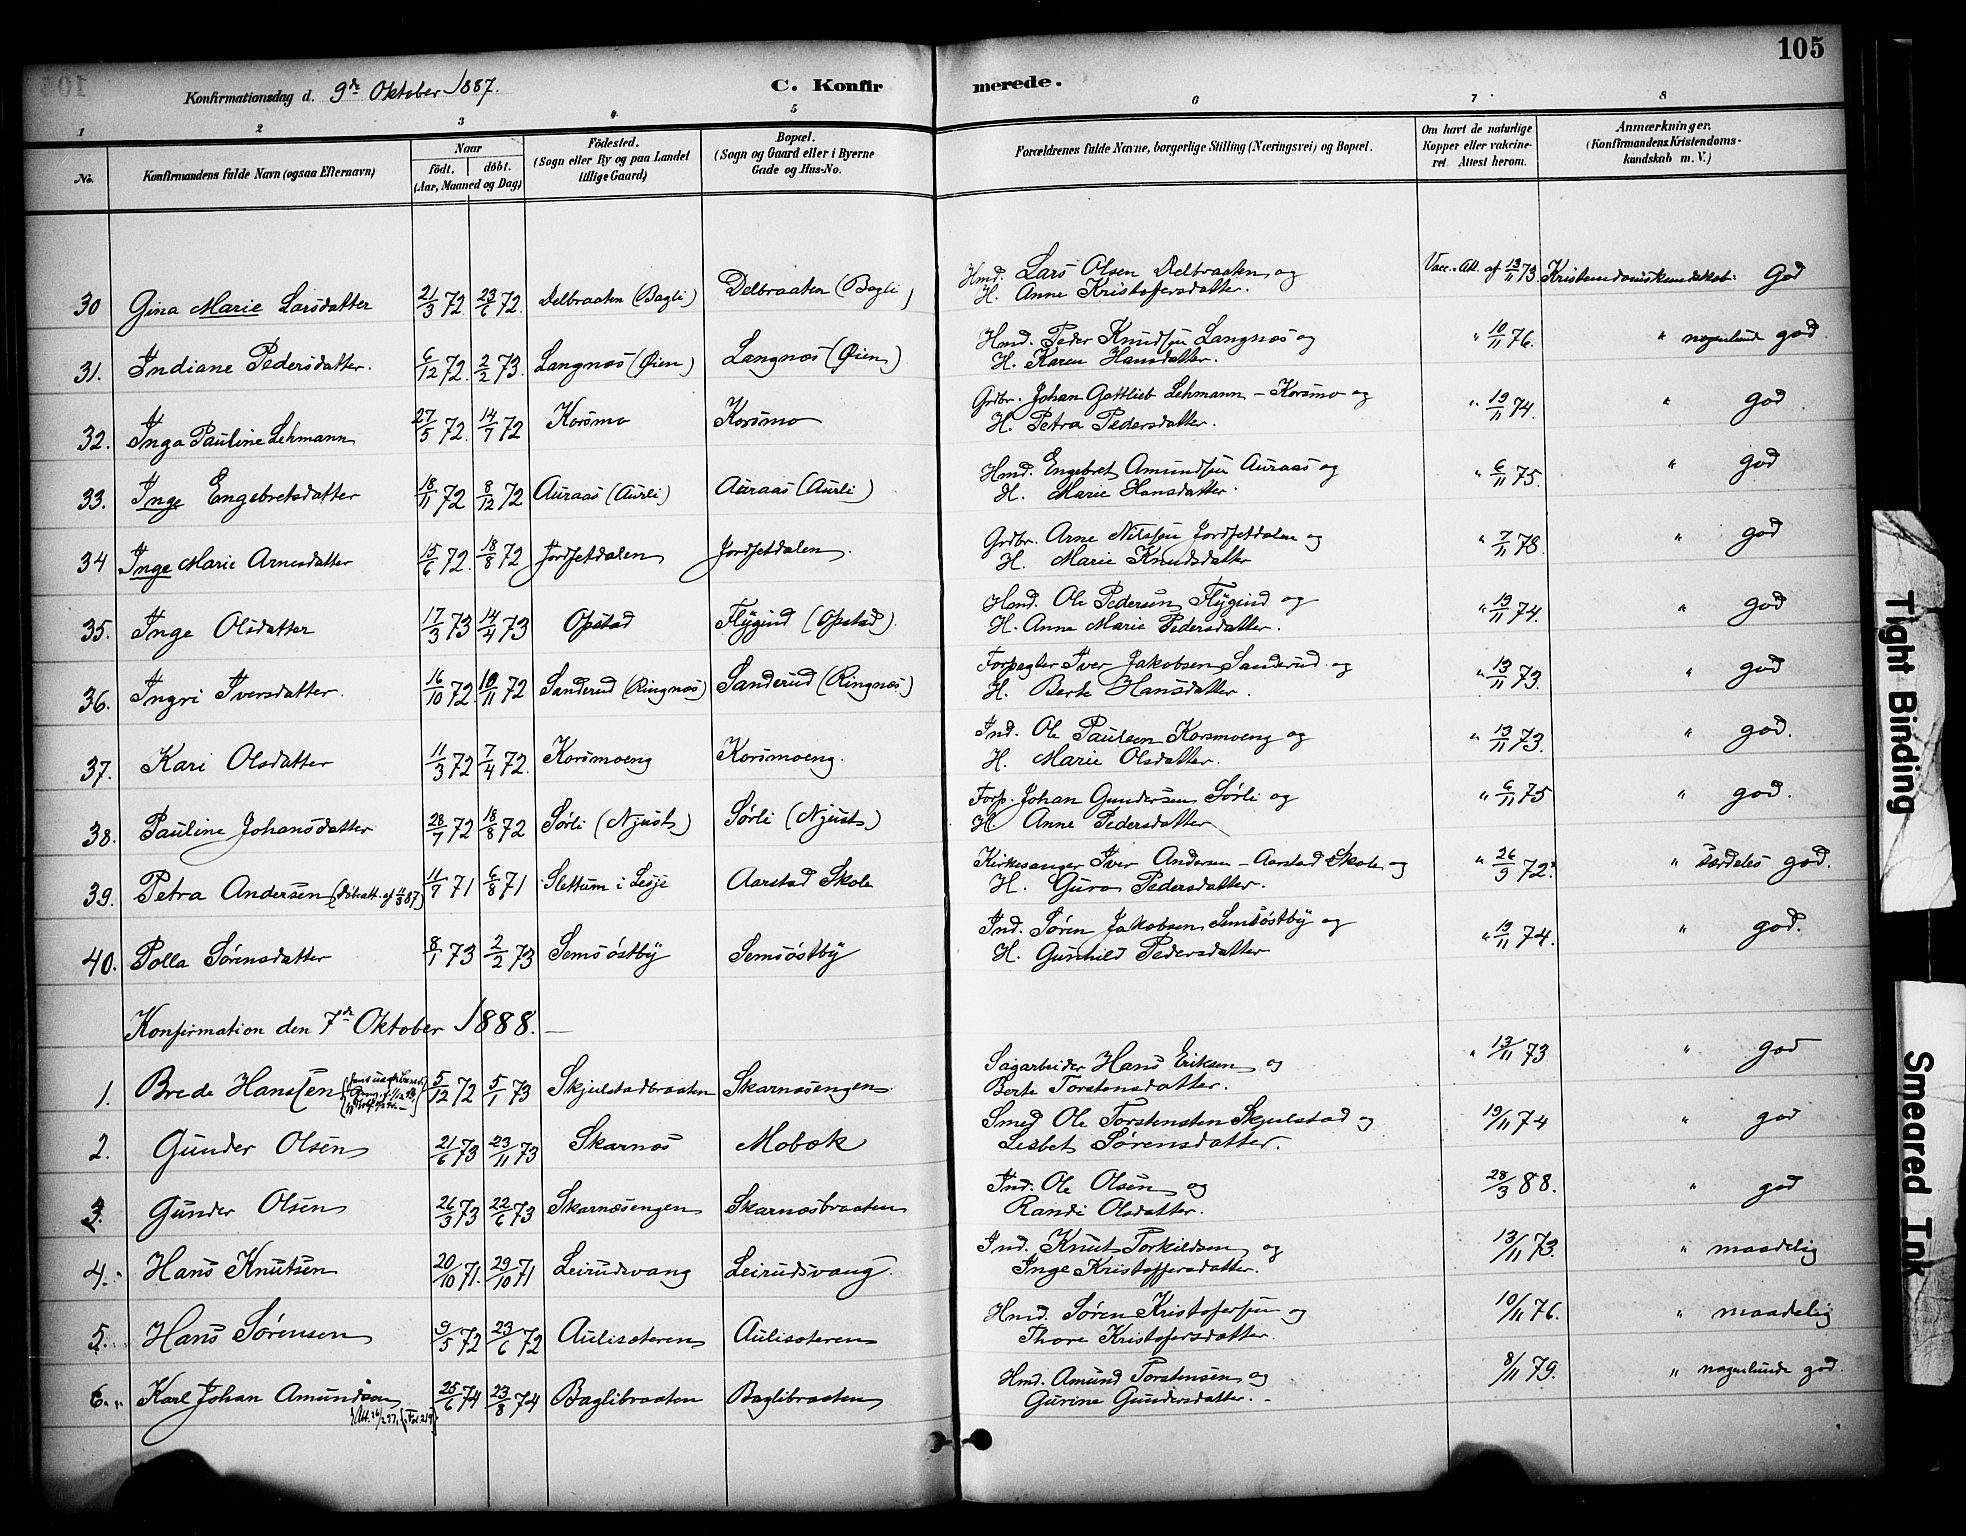 105
Konfirmationsdag d. 9de Oktober 1887.
C. Konfirmerede.
1 2 3 4 5 6 7 8
No.
Konfirmandens fulde Navn (ogsaa Efternavn)
Naar
födt. döbt.
(Aar, Maaned og Dag)
Födested.
(Sogn eller By og paa Landet
tillige Gaard)
Bopæl.
(Sogn og Gaard eller i Byerne
Gade og Hus-No.
Forældrenes fulde Navne, borgerlige Stilling (Næringsvei) og Bopæl.
Om havt de naturlige
Kopper eller vakcine-
ret. Attest herom.
Anmærkninger.
(Konfirmandens Kristendoms-
kundskab m. V.)
30 Gina Marie Larsdatter 21/3 72 23/6 72 Delbraaten (Bagli) Delbraaten (Bagli) Hmd. Lars Olsen Delbraaten og Vacc.-Att. af 13/11 73 Kristendomskundskab: God
H. Anne Kristoffersdatter.
31. Indiane Pedersdatter. 6/12 72. 2/2 73. Langnæs (Øien) Langnæs (Øien) Hmd. Peder Knudsen Langnæs og " 10/11 76. " nogenlunde god.
H. Karen Hansdatter.
32. Inga Pauline Lehmann 27/5 72. 14/7 72 Korsmo Korsmo Grdbr. Johan Gottlieb Lehmann - Korsmo og " 19/11 74. " god
H. Petra Pedersdatter.
33. Inge Engebretsdatter 18/11 72 8/12 72 Auraas (Aurli) Auraas (Aurli) Hmd. Engebret Amundsen Auraas og " 6/11 75. " god
H. Marie Hansdatter.
34 Inge Marie Arnesdatter 15/6 72. 18/8 72 Jordsetdalen Jordsetdalen. Grdbr. Arne Nilssen Jordsetdalen og " 7/11 78. " god
H. Marie Knudsdatter
35. Inge Olsdatter 17/3 73 14/4 73 Opstad Flygind (Opstad). Hmd. Ole Pedersen Flygind og " 19/11 74. " god
H. Anne Marie Pedersdatter.
36. Ingri Iversdatter. 16/10 72. 10/11 72 Sanderud (Ringnæs) Sanderud (Ringnæs) Forpagter Iver Jakobsen Sanderud og " 13/11 73. " god
H. Berte Hansdatter.
37. Kari Olsdatter 11/3 72 7/4 72. Korsmoeng Korsmoeng. Ind. Ole Paulsen Korsmoeng og " 13/11 73. " god.
H. Marie Olsdatter.
38. Pauline Johansdatter 28/7 72 18/8 72 Sørli (Njust) Sørli (Njust) Forp. Johan Gundersen Sørli og " 6/11 75 " god.
H. Anne Pedersdatter
39. Petra Andersen 11/7 71 6/8 71 Slettum i Lesje Aarstad Skole Kirkesanger Iver Andersen - Aarstad Skole og " 26/9 72. " særdeles god.
H. Guro Pedersdatter.
40. Polla Sørensdatter 8/1 73 2/2 73 Semsøstby Semsøstby Ind. Søren Jakobsen Semsøstby og " 19/11 74. " god.
H. Gunhild Pedersdatter
Konfirmation den 7de Oktober 1888.
1. Brede Hanssen 5/12 72 5/1 73 Skjulstadbraaten Skarnæsengen Sagarbeider Hans Eriksen og " 13/11 73 " god
Berte Torstensdatter.
2. Gunder Olsen 21/6 73 23/11 73 Skarnæs Mobæk Smed Ole Torstensten Skjulstad og 19/11 74 " god
Lisbet Sørensdatter.
3. Gunder Olsen 26/3 73 22/6 73 Skarnæsengen Skarnæsbraaten Ind. Ole Olsen og 28/3 88. " god
Randi Olsdatter.
4. Hans Knutsen 20/10 71. 29/10 71 Leirudsvang Leirudsvang Ind. Knut Torkildsen og 13/11 73. " maadelig
Inge Kristoffersdatter.
5. Hans Sørensen 9/5 72 23/6 72 Aulisæteren Aulisæteren Hmd. Søren Kristofersen og 10/11 76. " maadelig
Thore Kristofersdatter.
6. Karl Johan Amundsen 25/6 74 23/8 74 Baglibraaten Baglibraaten Hmd. Amund Torstensen og 8/11 79. " nogenlunde god
Gurine Gundersdatter.
Tight Binding
Smeared Ink